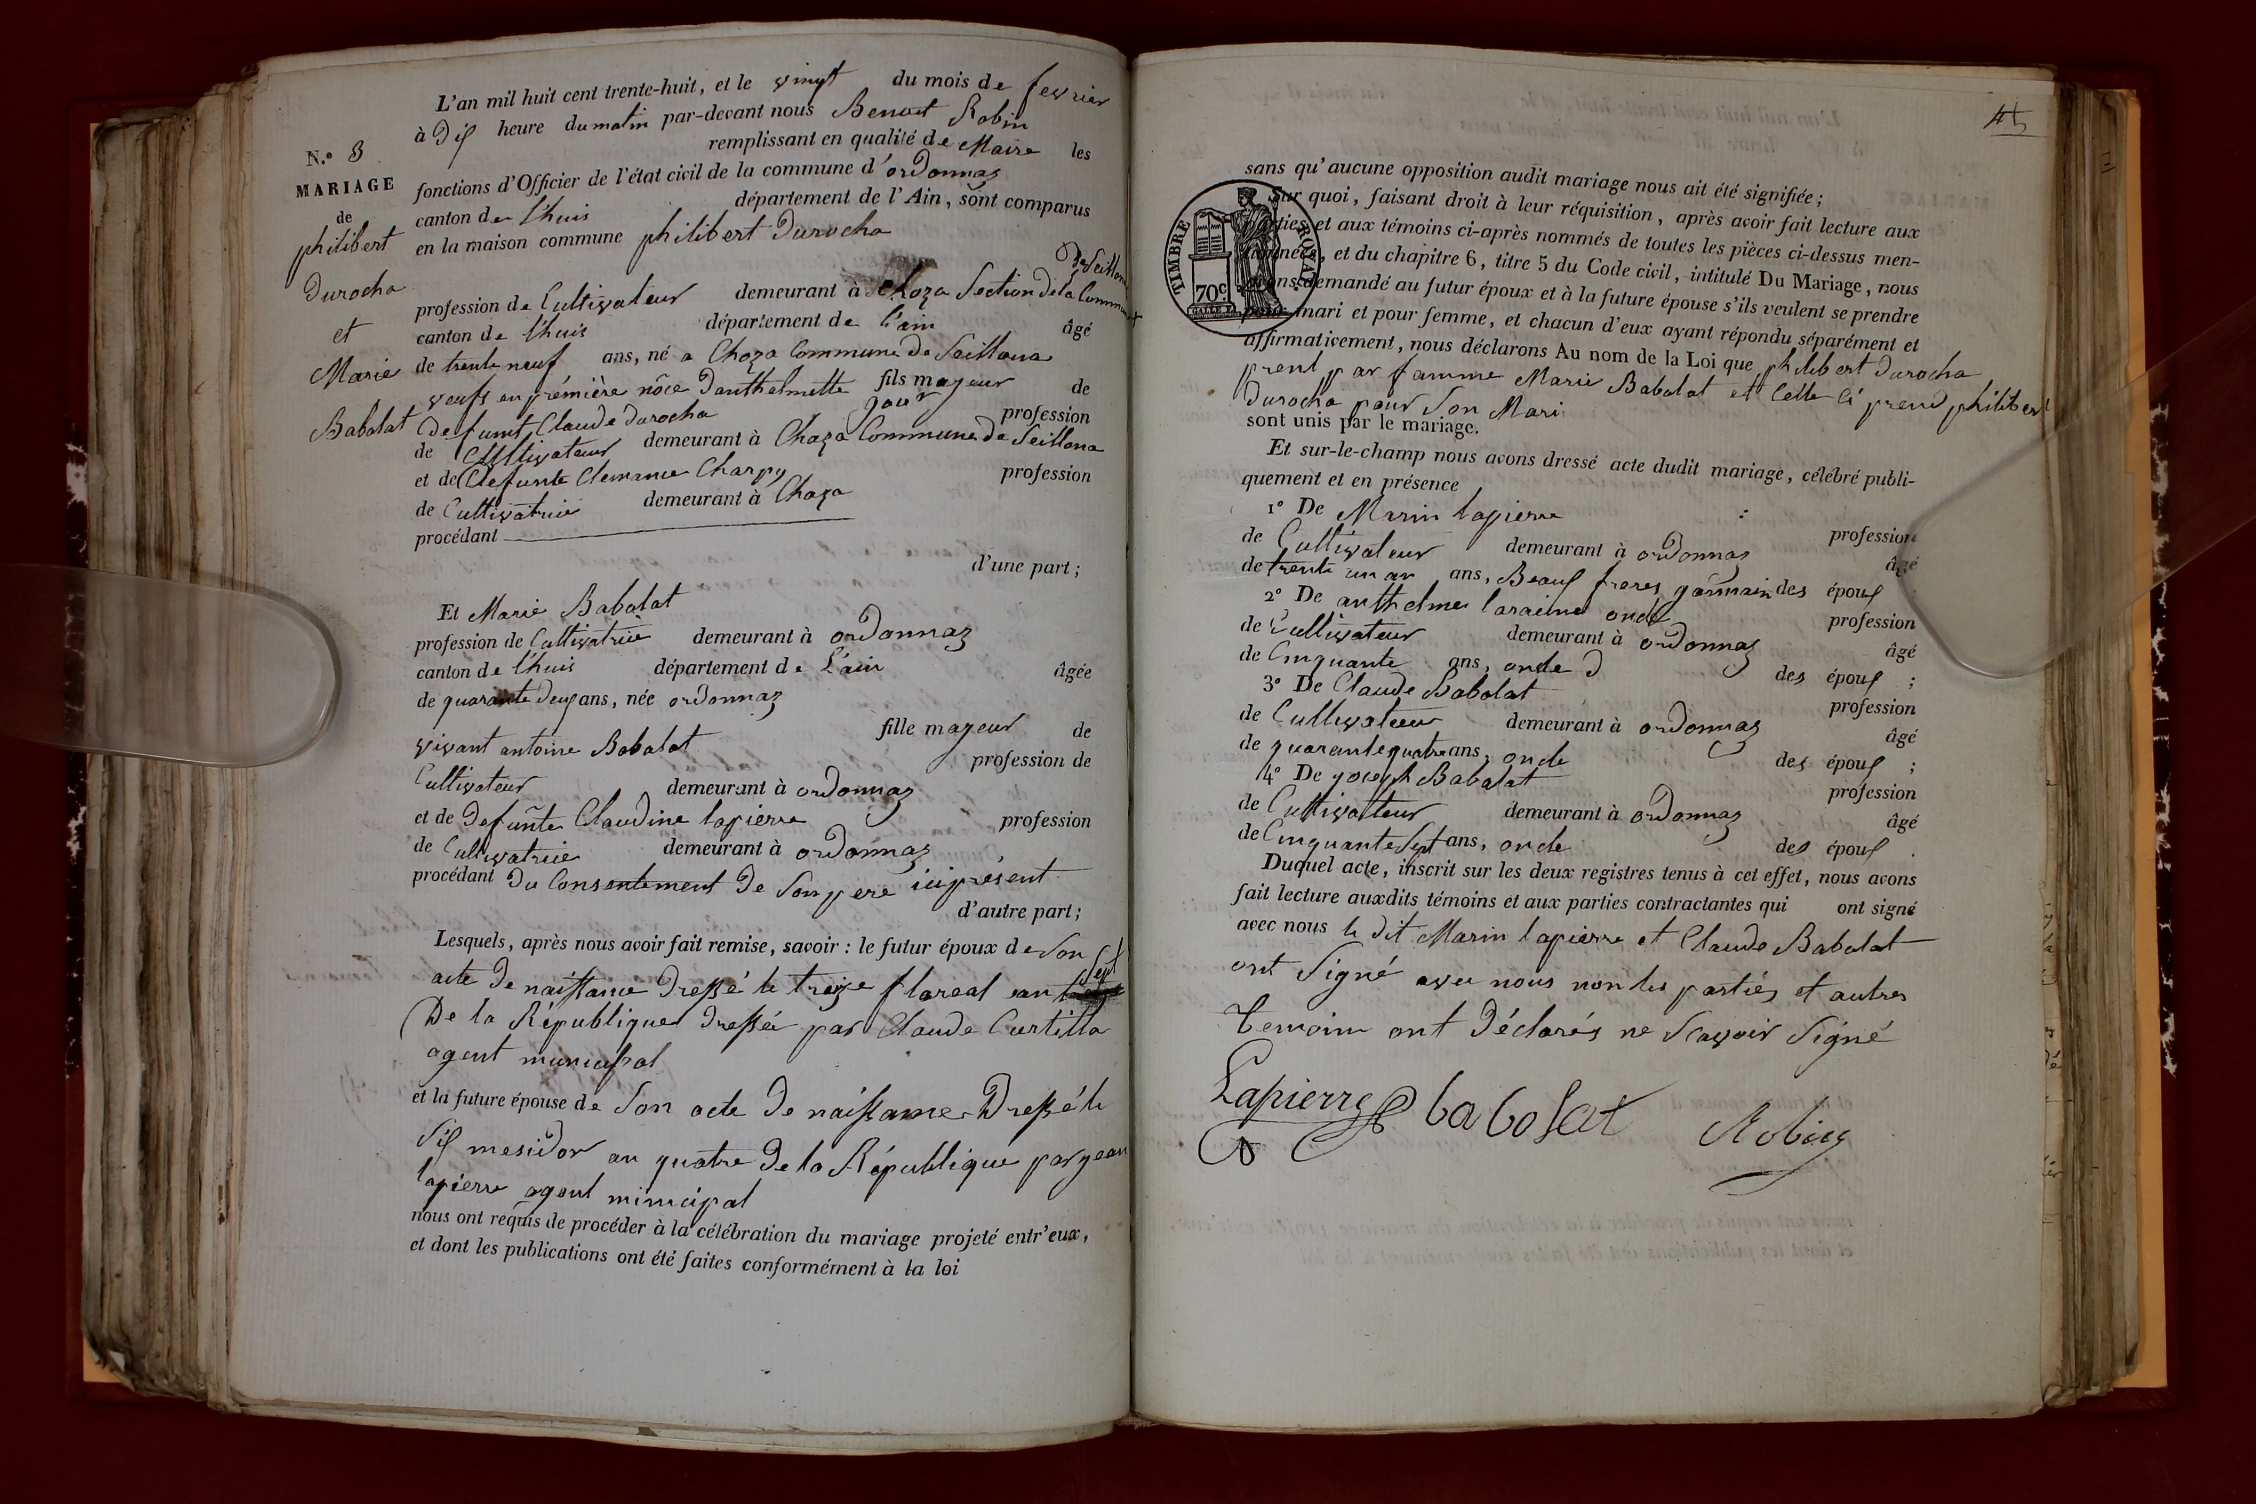 N.° 3
MARIAGE
de
philibert
Durocha
et
Marie
Babolat
L'an mil huit cent trente-huit, et le vingt du mois de fevrier
à Dix heure du matin par-devant nous Benoit Robin
remplissant en qualité de Maire les
fonctions d'Officier de l'état civil de la commune d'ordonnaz
canton de l'huis département de l'Ain, sont comparus
en la maison commune philibert Durocha
De Seillona
profession de Cultivateur demeurant à Choza Section de la Commune
canton de l'huis département de l'ain âgé
de trente neuf ans, né a Choza Commune de Seillona
veuf en prémière nôce D'anthelmette fils majeur de
Defunt Claude Durocha profession
de Cultivateur demeurant à Choza Commune de Seillona
et de Defunte Clemance Charpy profession
de Cultivatrice demeurant à Choza
procédant
d'une part;
Et Marie Babolat
profession de Cultivatrice demeurant à ordonnaz
canton de l'huis département de L'ain âgée
de quarante deux ans, née ordonnaz
fille majeur de
vivant antoine Babolat profession de
Cultivateur demeurant à ordonnaz
et de Defunte Claudine lapierre profession
de Cultivatrice demeurant à ordonnaz
procédant Du Consentement De Son pere ici présent
d'autre part;
Lesquels, après nous avoir fait remise, savoir: le futur époux de Son
acte De naissance Dressé le treize floreal an Sept
De la République Dressée par Claude Curtilla
agent municipal
et la future épouse de Son acte De naissance Dressé le
Six mesidor an quatre De la République par jean
lapierre agent minicipal
nous ont requis de procéder à la célébration du mariage projeté entr'eux,
et dont les publications ont été faites conformément à la loi
sans qu'aucune opposition audit mariage nous ait été signifiée;
Sur quoi, faisant droit à leur réquisition, après avoir fait lecture aux
parties et aux témoins ci-après nommés de toutes les pièces ci-dessus men-
tionnées, et du chapitre 6, titre 5 du Code civil, intitulé Du Mariage, nous
avons demandé au futur époux et à la future épouse s'ils veulent se prendre
pour mari et pour femme, et chacun d'eux ayant répondu séparément et
affirmativement, nous déclarons Au nom de la Loi que philibert Durocha
prent par famme Marie Babolat et Celle Ci prend philibert
Durocha pour Son Mari
sont unis par le mariage.
TIMBRE ROYAL
70c
Et sur-le-champ nous avons dressé acte dudit mariage, célébré publi-
quement et en présence
1° De Marin lapierre profession
de Cultivateur demeurant à ordonnaz âgé
de trente un an ans, Beaux freres germain des époux
2° De anthelme laraine oncle profession
de Cultivateur demeurant à ordonnaz âgé
de Cinquante ans, oncle des époux;
3° De Claude Babolat profession
de Cultivateur demeurant à ordonnaz âgé
de quarante quatre ans, oncle des époux;
4° De joseph Babolat profession
de Cultivateur demeurant à ordonnaz âgé
de Cinquante Sept ans, oncle des époux.
Duquel acte, inscrit sur les deux registres tenus à cet effet, nous avons
fait lecture auxdits témoins et aux parties contractantes qui ont signé
avec nous le dit Marin lapierre et Claude Babolat
ont Signé avec nous non les partiés et autres
temoins ont Déclarés ne Scavoir Signé
Lapierre babolat Robin